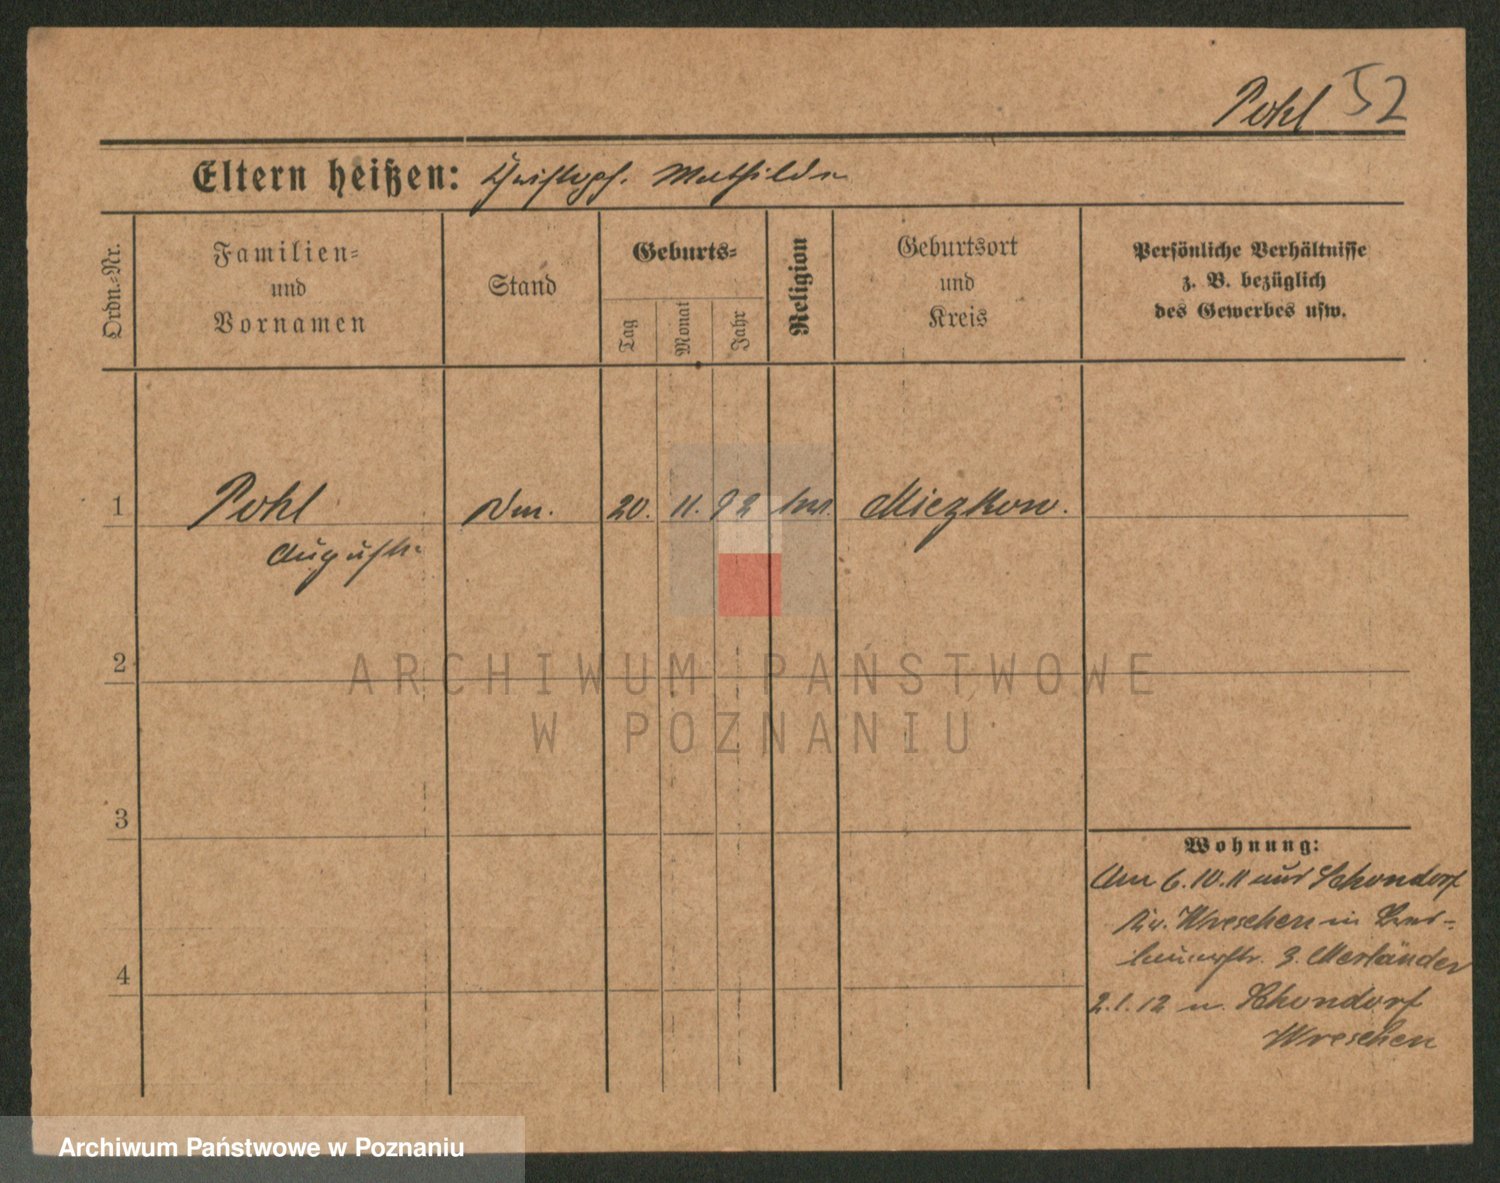 Pohl 52
Eltern heißen: Christoph. Mathilde
Ordn.-Nr.
Familien=
und
Vornamen
Stand
Geburts=
Tag
Monat
Jahr
Religion
Geburtsort
und
Kreis
Persönliche Verhältnisse
z. B. bezüglich
des Gewerbes usw.
1 Pohl 20. 11. 92 Miezkow.
Auguste
2
ARCHIWUM PAŃSTWOWE
W POZNANIU
3
4
Wohnung:
Am 6.10.11 aus Schondorf
Kr. Wreschen in
3.
2.1.12 n. Schondorf
Wreschen
Archiwum Państwowe w Poznaniu